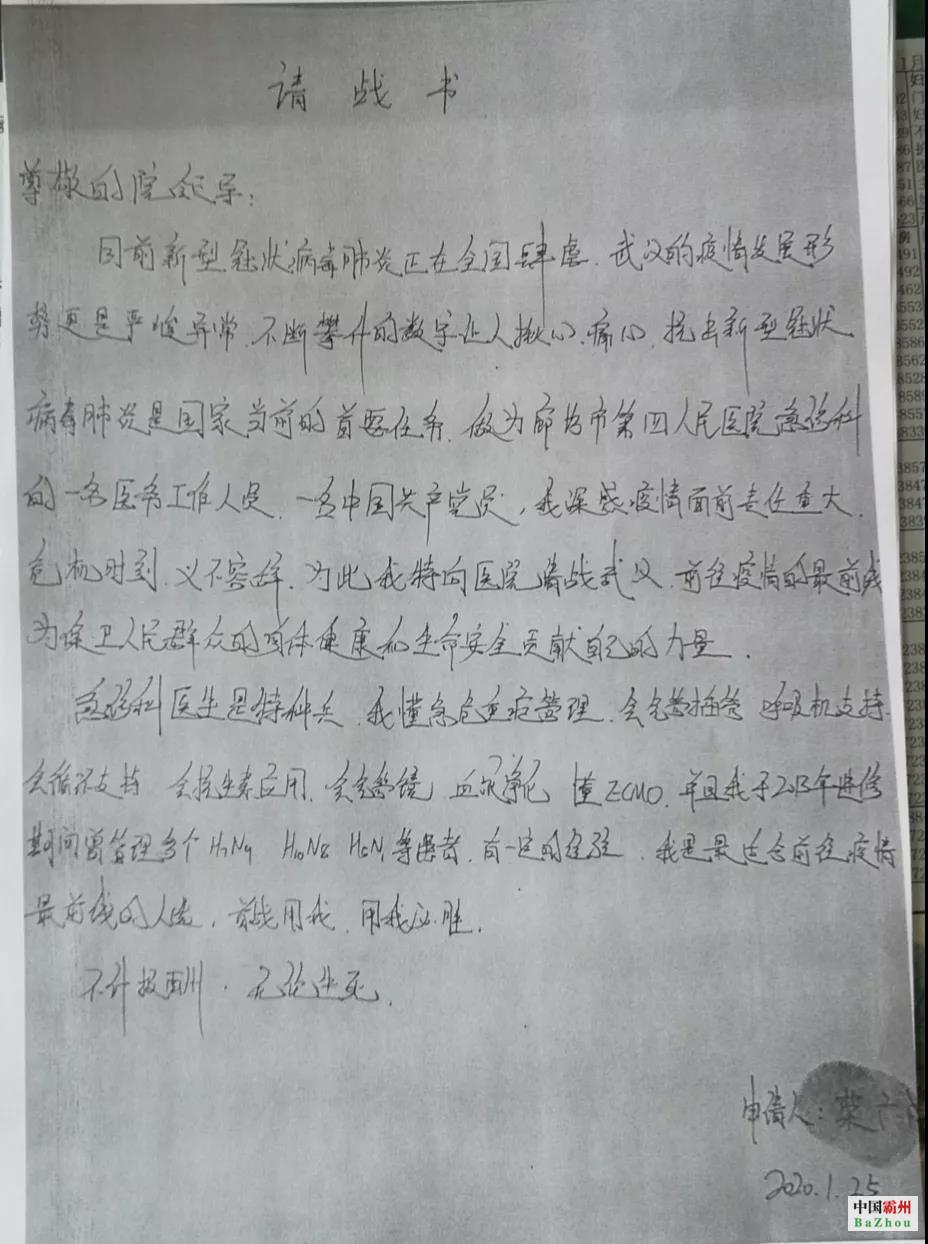 请战书
尊敬的院领导：
目前新型冠状病毒肺炎正在全国肆虐，武汉的疫情发展形
势更是严峻异常，不断攀升的数字让人揪心、痛心，抗击新型冠状
病毒肺炎是国家当前的首要任务，做为廊坊市第四人民医院急诊科
的一名医务工作人员，一名中国共产党员，我深感疫情面前责任重大，
危机时刻，义不容辞，为此我特向医院请战武汉，前往疫情的最前线
为保卫人民群众的身体健康和生命安全贡献自己的力量．
急诊科医生是特种兵，我懂急危重症管理，会气管插管 呼吸机支持，
会循环支持 会抗生素应用，会气管镜，血液净化 懂ECMO，并且我于2013年进修
期间曾管理多个H7N9 H10N8 H5N1等患者，有一定的经验，我是最适合前往疫情
最前线的人选，若战用我，用我必胜．
不计报酬．无论生死．
申请人：
2020.1.25
中国霸州
BaZhou